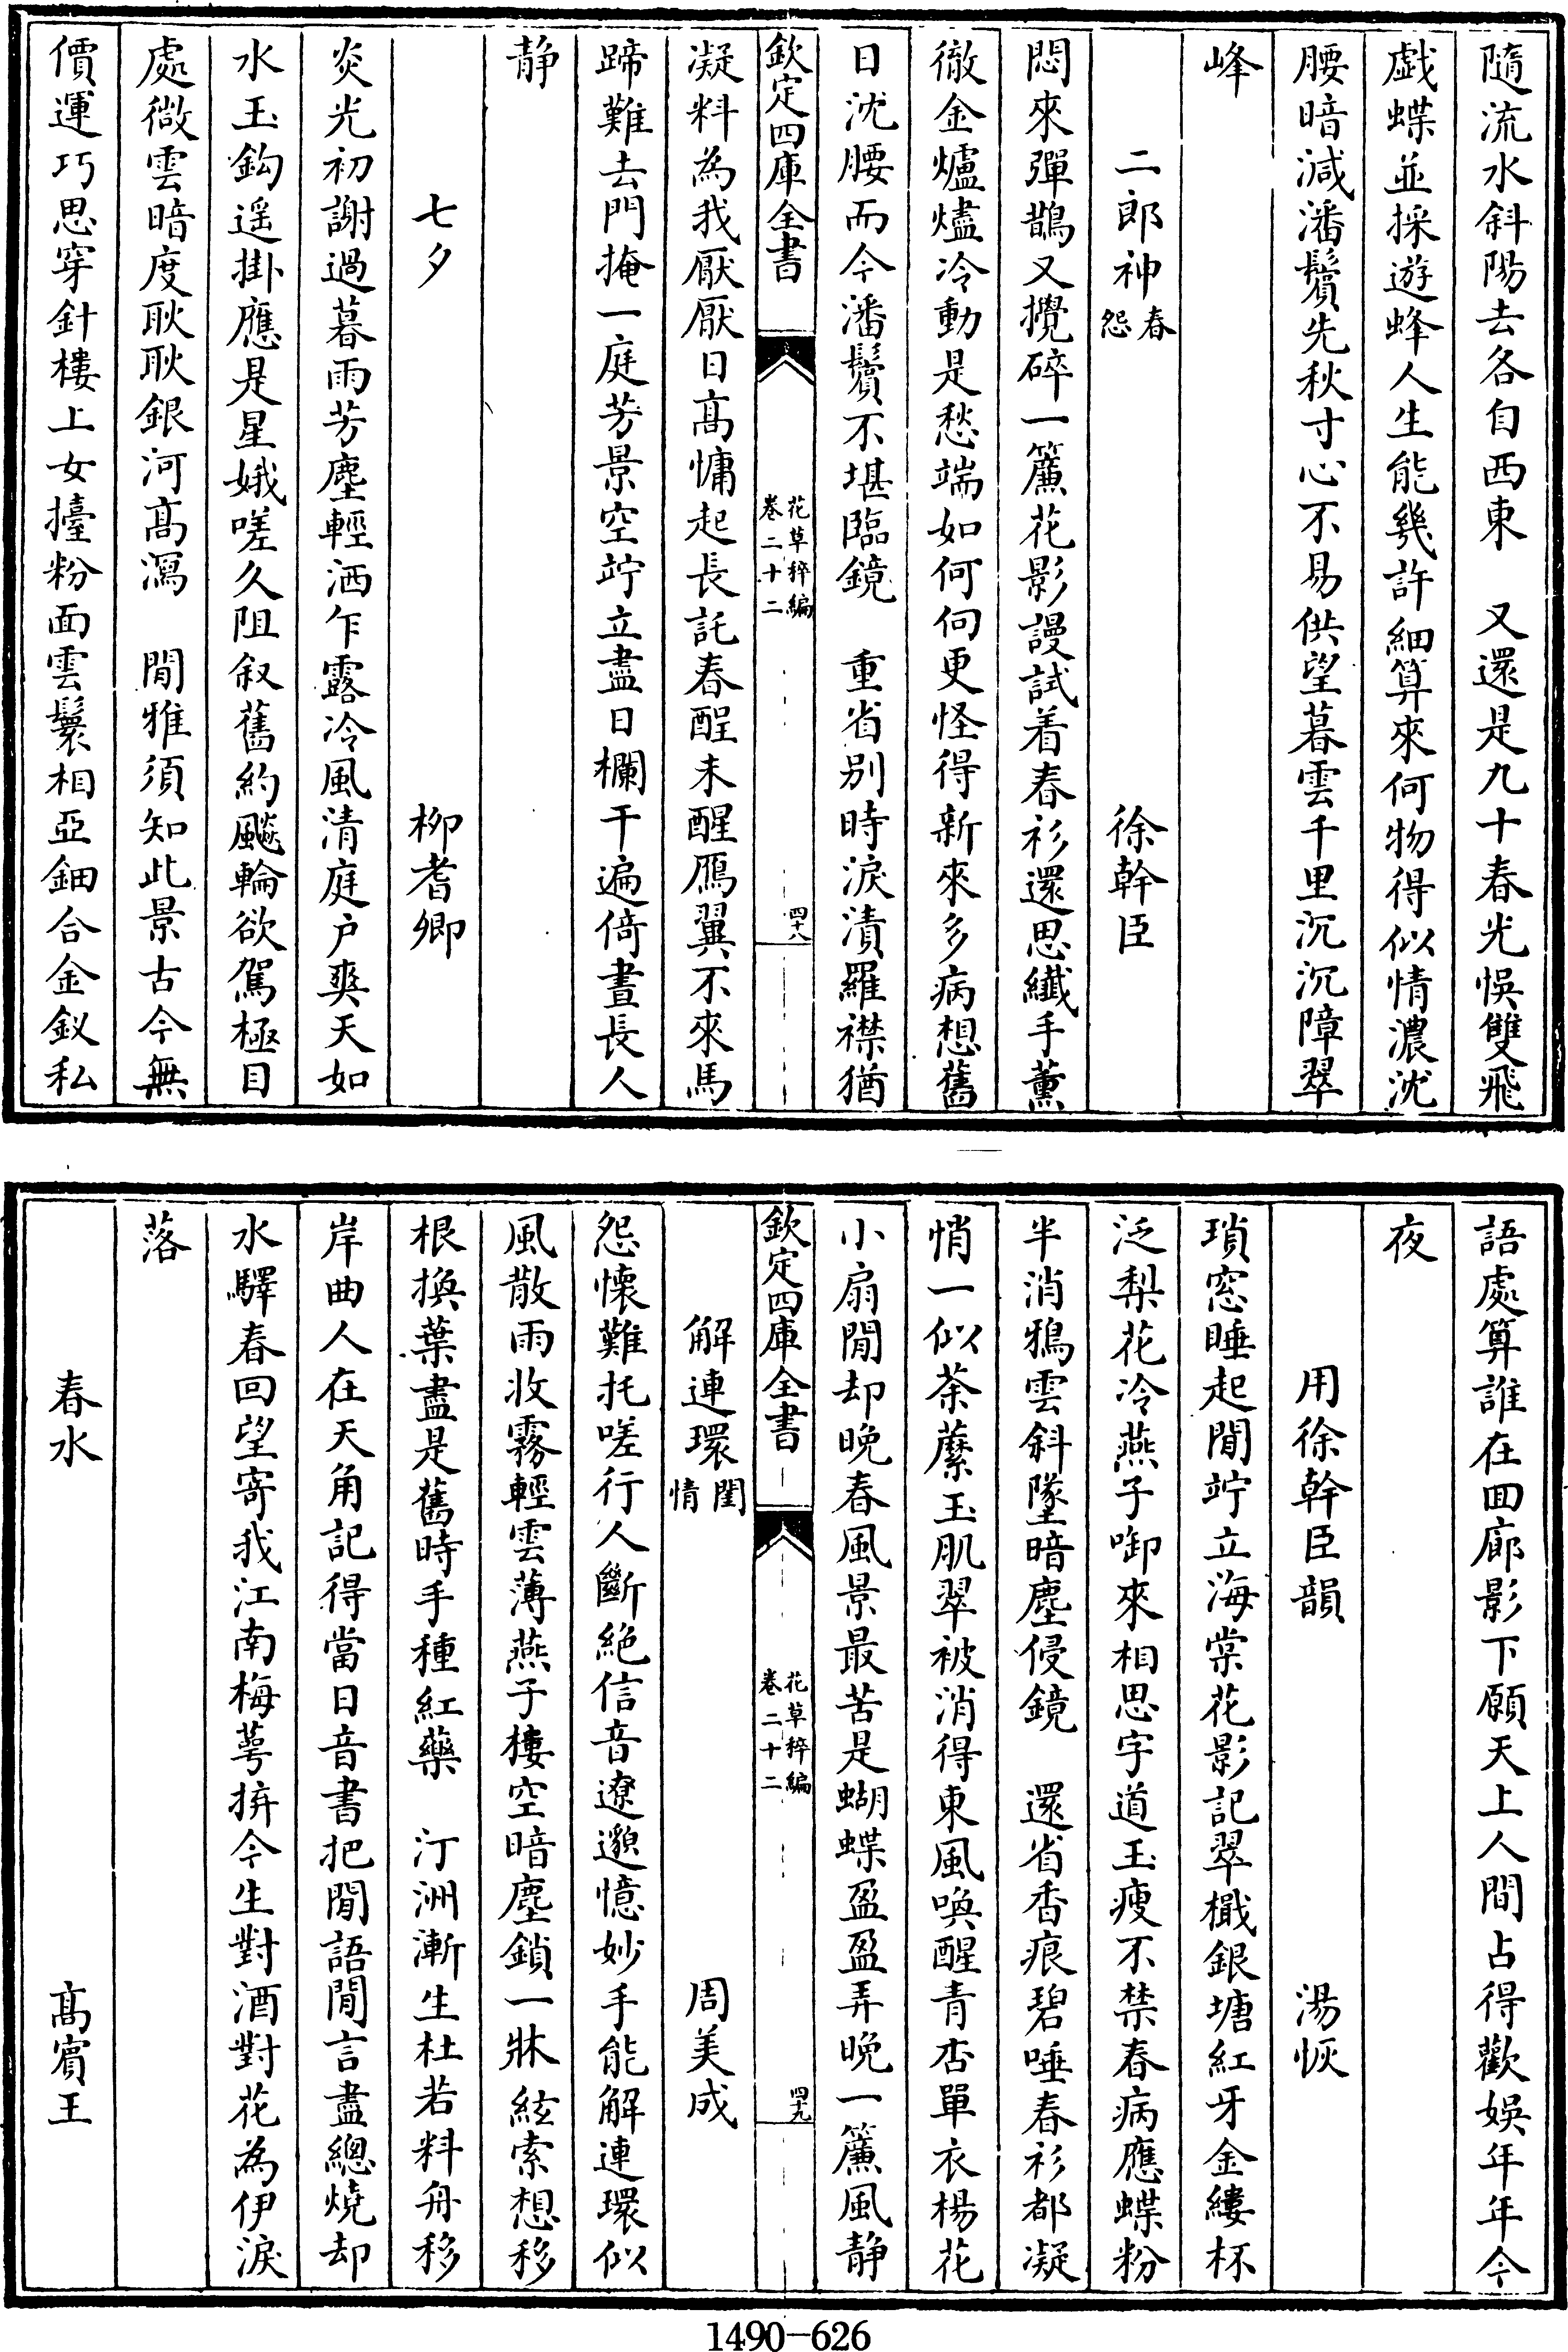 隨流水斜陽去各自西東　又還是九十春光悞雙飛
戯蝶並採遊蜂人生能幾許細算來何物得似情濃沈
腰暗減潘鬢先秋寸心不易供望暮雲千里沉沉障翠
峰
二郎神春怨　徐幹臣
悶來彈鵲又攪碎一簾花影謾試着春衫還思纎手薰
徹金爐燼冷動是愁端如何向更怪得新來多病想舊
日沈腰而今潘鬢不堪臨鏡　重省别時淚漬羅襟猶
欽定四庫全書　花草稡編卷二十二　四十八
凝料為我厭厭日髙慵起長託春酲未醒鴈翼不來馬
蹄難去門掩一庭芳景空竚立盡日欄干遍倚晝長人
静
七夕　柳耆卿
炎光初謝過暮雨芳塵輕洒乍露冷風清庭户爽天如
水玉鈎遥掛應是星娥嗟久阻叙舊約飈輪欲駕極目
處微雲暗度耿耿銀河髙瀉　閒雅須知此景古今無
價運巧思穿針樓上女擡粉面雲鬟相亞鈿合金釵私
語處算誰在囬廊影下願天上人間占得歡娛年年今
夜
用徐幹臣韻　湯恢
瑣窓睡起閒竚立海棠花影記翠檝銀塘紅牙金縷杯
泛梨花冷燕子啣來相思字道玉瘦不禁春病應蝶粉
半消鴉雲斜墜暗塵侵鏡　還省香痕碧唾春衫都凝
悄一似荼䕷玉肌翠被消得東風喚醒青杏單衣楊花
小扇閒却晚春風景最苦是蝴蝶盈盈弄晚一簾風静
欽定四庫全書　花草稡編卷二十二　四十九
解連環閨情　周美成
怨懷難托嗟行人斷絶信音遼邈憶妙手能解連環似
風散雨收霧輕雲薄燕子樓空暗塵鎖一牀絃索想移
根換葉盡是舊時手種紅藥　汀洲漸生杜若料舟移
岸曲人在天角記得當日音書把閒語閒言盡總燒却
水驛春回望寄我江南梅萼拚今生對酒對花為伊淚
落
春水　髙賔王
1490—626